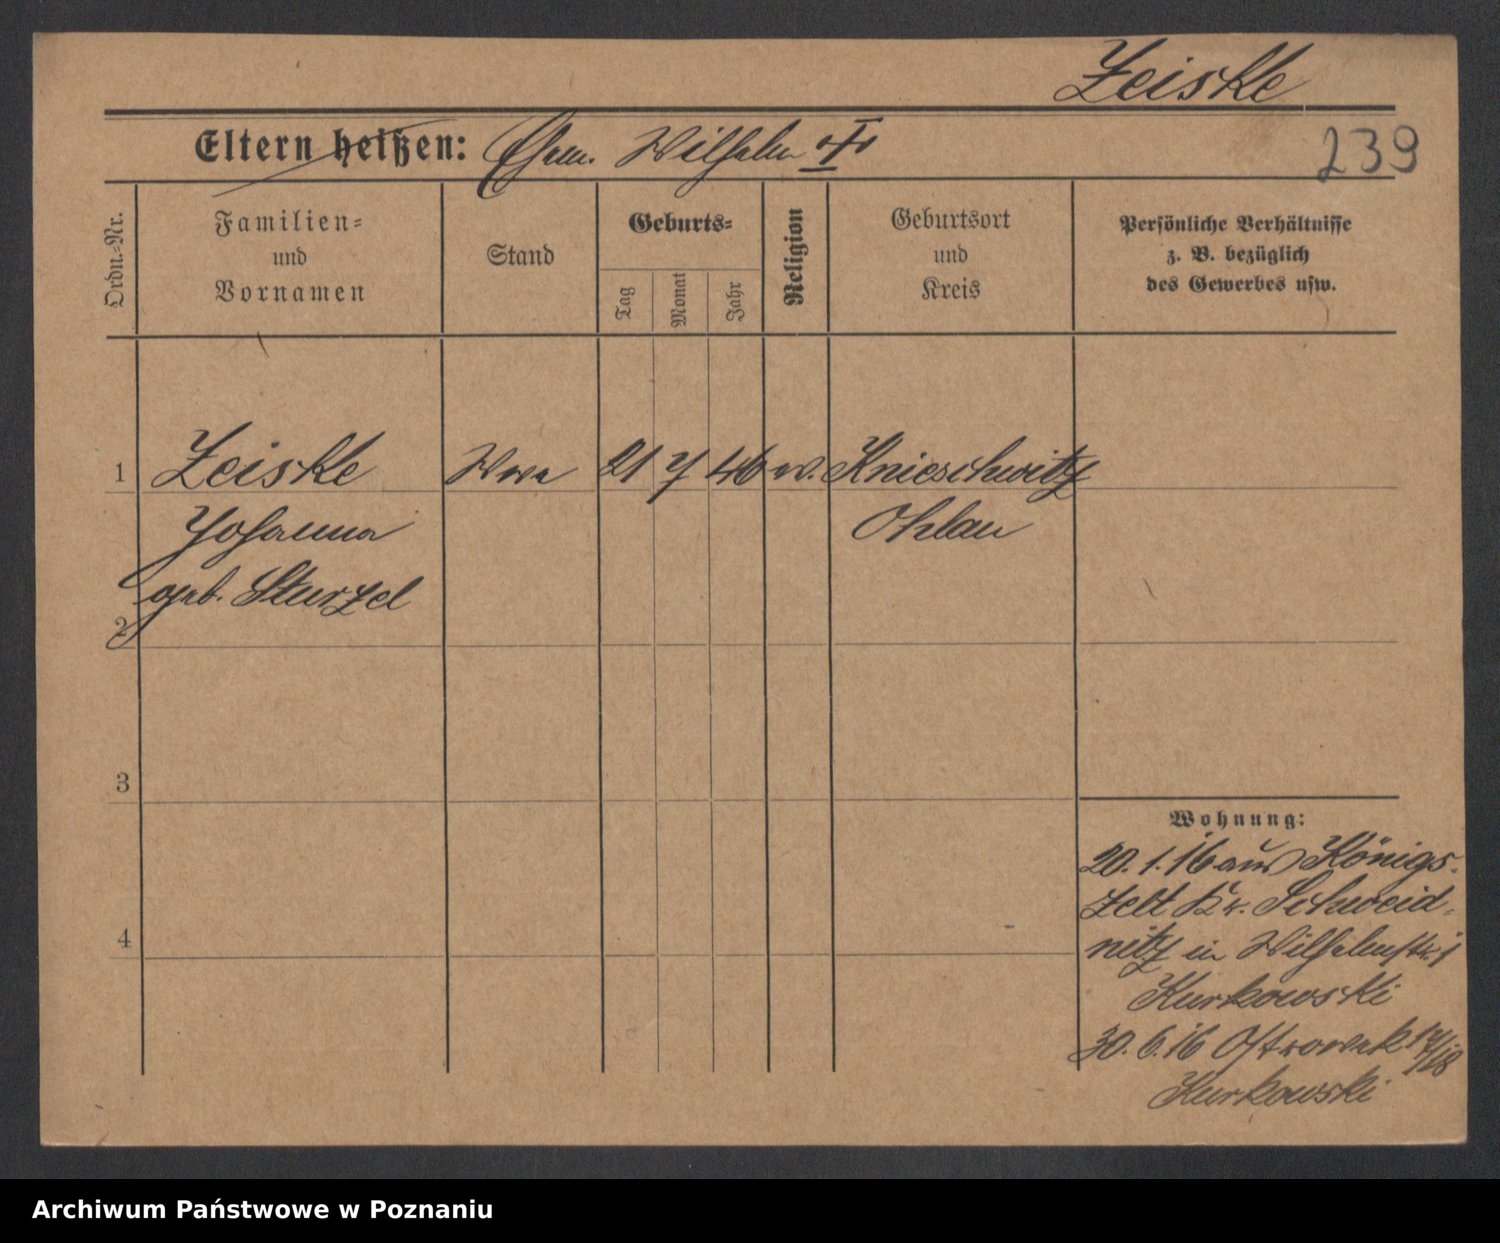 Zeiske
Eltern heißen: Ehem. Wilhelm
239
Ordn.-Nr.
Familien-
und
Vornamen
Stand
Geburts-
Tag
Monat
Jahr
Religion
Geburtsort
und
Kreis
Persönliche Verhältnisse
z. B. bezüglich
des Gewerbes usw.
1 Zeiske Wwe 21 7 46 w. Knieschwitz
Johanna Ohlau
geb. Sturzel
2
3
4
Wohnung:
20. 1. 16 aus Königs-
zelt Kr. Schweid-
nitz in Wilhelmstr. 1
Kurkowski
30. 6. 16 Ostrowek
Kurkowski
Archiwum Państwowe w Poznaniu